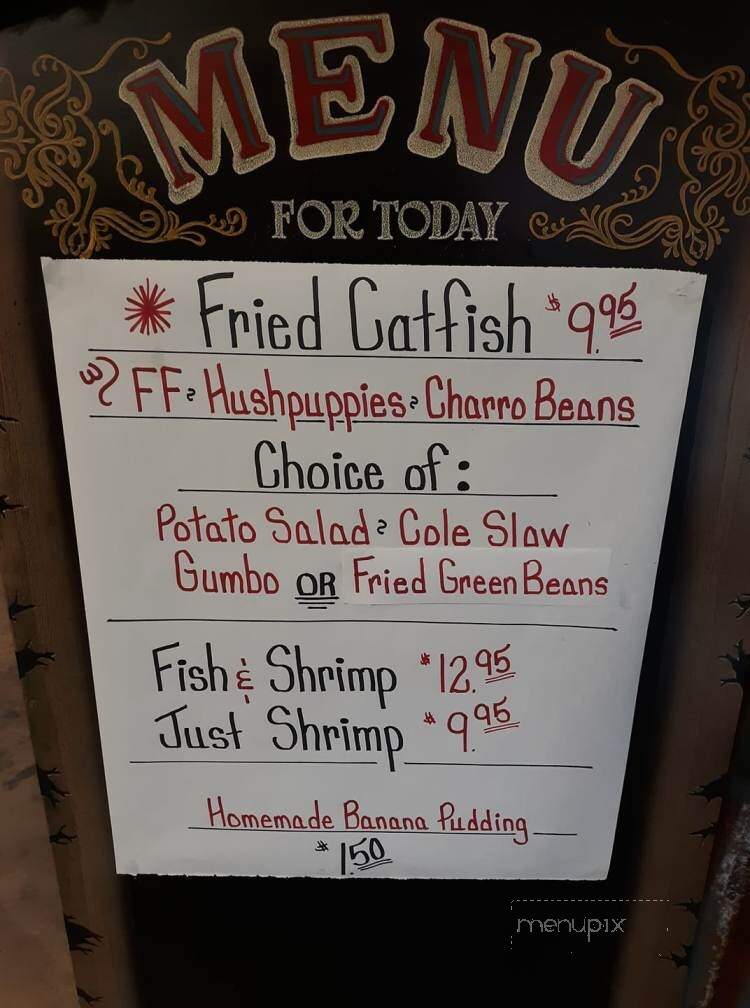 MENU
FOR TODAY
Fried Catfish $9.95
w/ FF Hushpuppies Charro Beans
Choice of:
Potato Salad Cole Slaw
Gumbo OR Fried Green Beans
Fish & Shrimp $12.95
Just Shrimp $9.95
Homemade Banana Pudding
$1.50
menupix